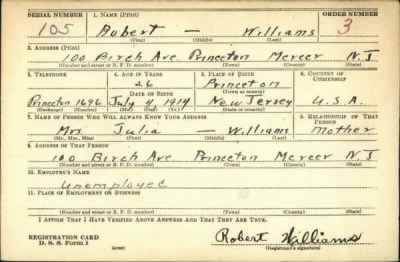 SERIAL NUMBER 1. NAME (Print) ORDER NUMBER
105 Robert — Williams 3
(First) (Middle) (Last)
2. ADDRESS (Print)
100 Birch Ave Princeton Mercer N.J
(Number and street or R. F. D. number) (Town) (County) (State)
3. TELEPHONE 4. AGE IN YEARS 5. PLACE OF BIRTH 6. COUNTRY OF CITIZENSHIP
26 Princeton
DATE OF BIRTH (Town or county)
Princeton 1696 July 4 1914 New Jersey U.S.A.
(Exchange) (Number) (Mo.) (Day) (Yr.) (State or country)
7. NAME OF PERSON WHO WILL ALWAYS KNOW YOUR ADDRESS 8. RELATIONSHIP OF THAT PERSON
Mrs Julia — Williams Mother
(Mr., Mrs., Miss) (First) (Middle) (Last)
9. ADDRESS OF THAT PERSON
100 Birch Ave Princeton Mercer N.J
(Number and street or R. F. D. number) (Town) (County) (State)
10. EMPLOYER'S NAME
Unemployed
11. PLACE OF EMPLOYMENT OR BUSINESS
(Number and street or R. F. D. number) (Town) (County) (State)
I AFFIRM THAT I HAVE VERIFIED ABOVE ANSWERS AND THAT THEY ARE TRUE.
REGISTRATION CARD
D. S. S. Form 1 (over) Robert Williams
(Registrant's signature)